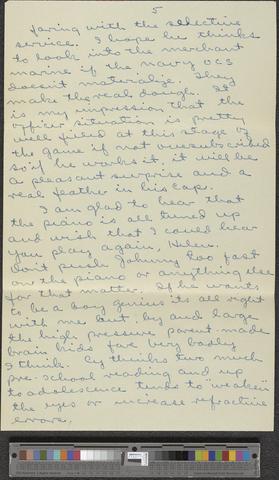 5
faring with the selective
service. I hope he thinks
to look into the merchant
marine if the navy OCS
doesn't materialize. They
make the real dough. It
is my impression that the
officer situation is pretty
well filled at this stage of
the game if not oversubscribed
so if he works it, it will be
a pleasant surprise and a
real feather in his cap.
I am glad to hear that
the piano is all tuned up
and wish that I could hear
you play again, Helen.
Don't push Johnny too fast
on the piano or anything else
for that matter. If he wants
to be a boy genius its all right
with me but by and large
the high pressure parent-made
brain kids fare very badly
I think. Cy thinks two much
pre-school reading and up
to adolescence tends to "weaken"
the eyes or increase refractive
errors.